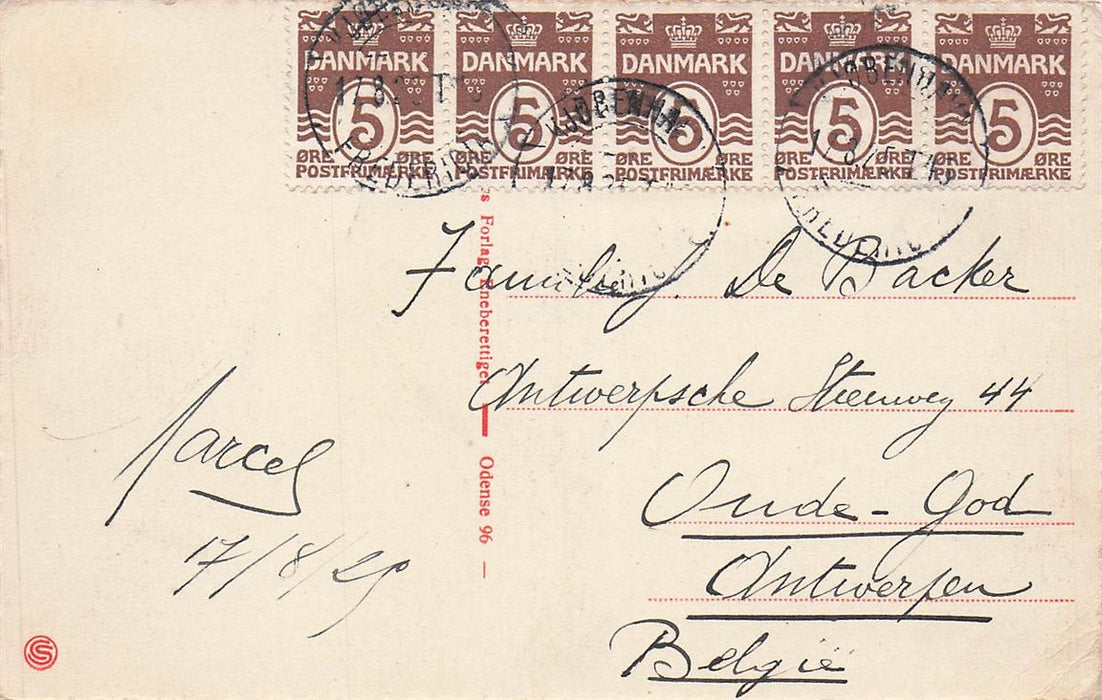 DANMARK DANMARK DANMARK DANMARK DANMARK
5 5 5 5 5
ØRE ØRE ØRE ØRE ØRE ØRE ØRE ØRE ØRE ØRE
POSTFRIMÆRKE POSTFRIMÆRKE POSTFRIMÆRKE POSTFRIMÆRKE POSTFRIMÆRKE
KJØBENHAVN
FREDERICIA
s Forlag Eneberettiget
Odense 96
Familie De Backer
Antwerpsche Steenweg 44
Oude-God
Antwerpen
België
Marcel
17/8/29